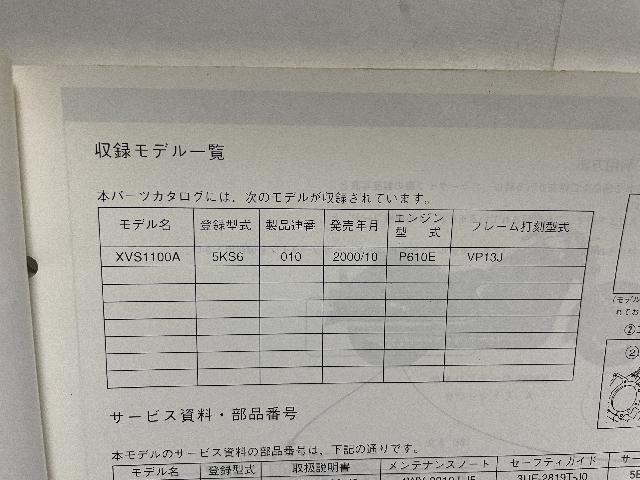 収録モデル一覧
本パーツカタログには、次のモデルが収録されています。
モデル名 登録型式 製品連番 発売年月 エンジン型式 フレーム打刻型式
XVS1100A 5KS6 010 2000/10 P610E VP13J
サービス資料・部品番号
本モデルのサービス資料の部品番号は、下記の通りです。
モデル名 登録型式 取扱説明書 メンテナンスノート セーフティガイド サー
(モデル
れてお
②エ
②